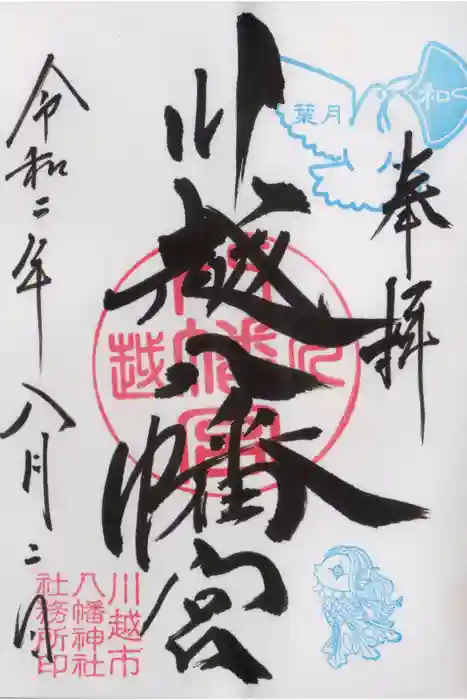 奉拝
川越八幡宮
令和二年八月二日
葉月
和
川越市
八幡神社
社務所印